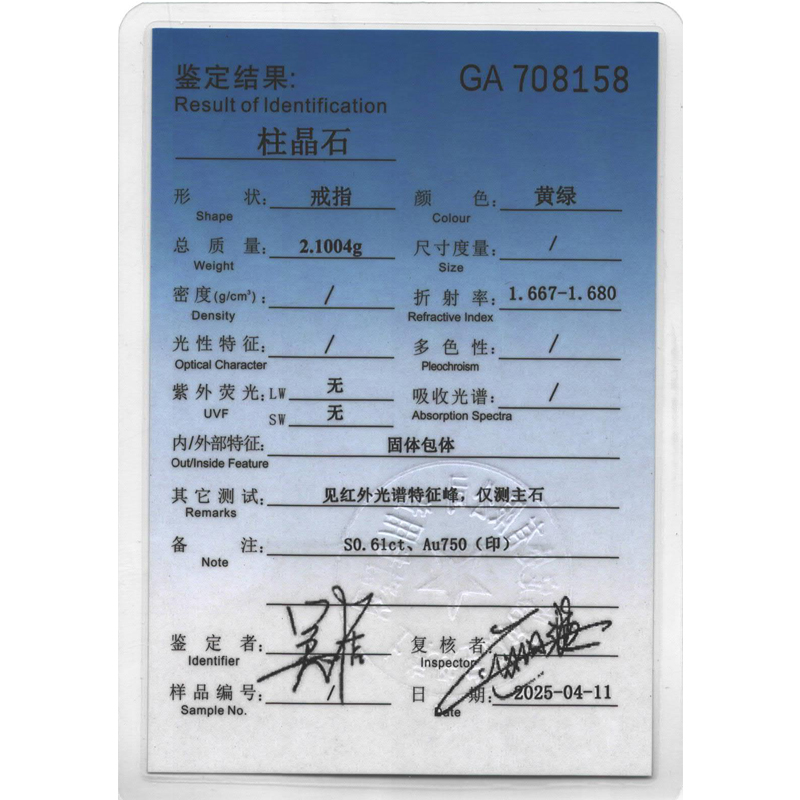 鉴定结果: GA 708158
Result of Identification
柱晶石
形 状: 戒指 颜 色: 黄绿
Shape Colour
总 质 量: 2.1004g 尺寸度量: /
Weight Size
密 度(g/cm³): / 折 射 率: 1.667-1.680
Density Refractive Index
光 性 特 征: / 多 色 性: /
Optical Character Pleochroism
紫 外 荧 光: LW 无 吸收光谱: /
UVF SW 无 Absorption Spectra
内/外部特征: 固体包体
Out/Inside Feature
其 它 测 试: 见红外光谱特征峰，仅测主石
Remarks
备 注: S0.61ct、Au750（印）
Note
鉴 定 者: 复 核 者:
Identifier Inspector
样 品 编 号: / 日 期: 2025-04-11
Sample No. Date